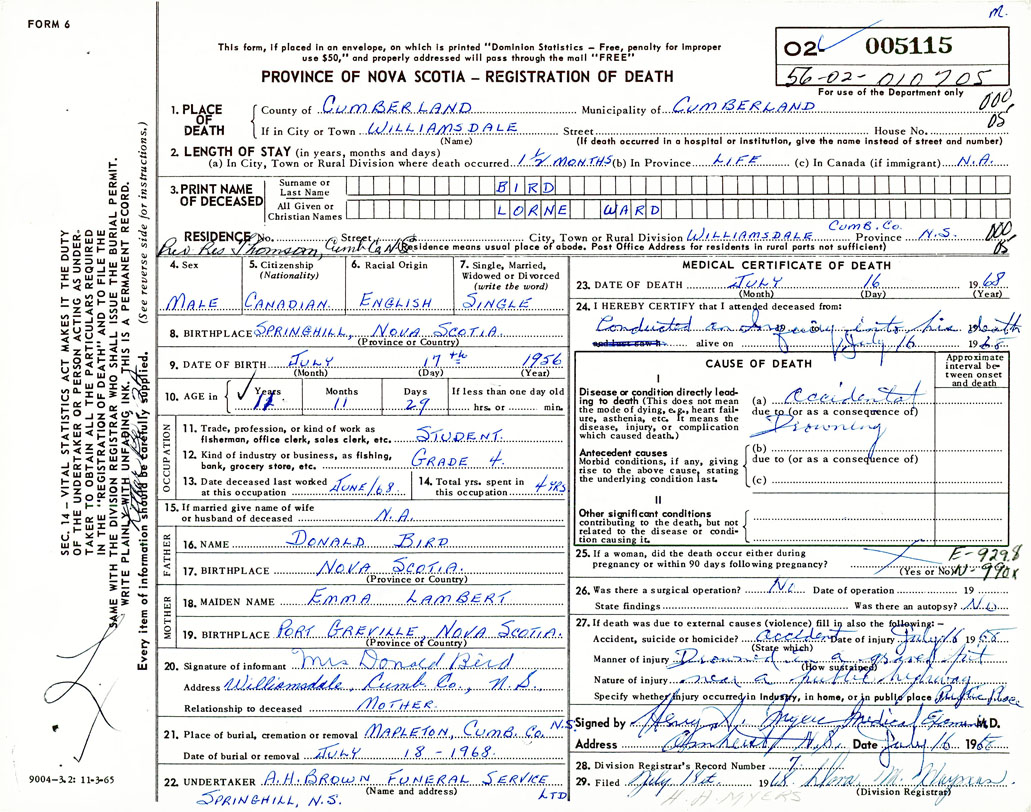 FORM 6
m.
This form, if placed in an envelope, on which is printed "Dominion Statistics – Free, penalty for improper
use $50," and properly addressed will pass through the mail "FREE"
PROVINCE OF NOVA SCOTIA – REGISTRATION OF DEATH
02 005115
56-02-010705
For use of the Department only
1. PLACE OF DEATH
County of CUMBERLAND Municipality of CUMBERLAND
000,
05
If in City or Town WILLIAMSDALE Street House No.
(Name) (If death occurred in a hospital or institution, give the name instead of street and number)
2. LENGTH OF STAY (in years, months and days)
(a) In City, Town or Rural Division where death occurred 1 1/2 MONTHS (b) In Province LIFE (c) In Canada (if immigrant) N.A.
3. PRINT NAME OF DECEASED
Surname or Last Name BIRD
All Given or Christian Names LORNE WARD
RESIDENCE No. Street City, Town or Rural Division WILLIAMSDALE CUMB. Co. Province N.S.
000
05
Res Thomson, Cumb Co N.S. (Residence means usual place of abode. Post Office Address for residents in rural ports not sufficient)
4. Sex
MALE
5. Citizenship
(Nationality)
CANADIAN.
6. Racial Origin
ENGLISH
7. Single, Married,
Widowed or Divorced
(write the word)
SINGLE
8. BIRTHPLACE SPRINGHILL, NOVA SCOTIA.
(Province or Country)
9. DATE OF BIRTH JULY 17th 1956
(Month) (Day) (Year)
10. AGE in Years 11 Months 11 Days 29 If less than one day old
hrs. or min.
OCCUPATION
11. Trade, profession, or kind of work as
fisherman, office clerk, sales clerk, etc. STUDENT.
12. Kind of industry or business, as fishing,
bank, grocery store, etc. GRADE 4.
13. Date deceased last worked
at this occupation JUNE/68
14. Total yrs. spent in
this occupation 4 YRS
15. If married give name of wife
or husband of deceased N.A.
FATHER
16. NAME DONALD BIRD
17. BIRTHPLACE NOVA SCOTIA.
(Province or Country)
MOTHER
18. MAIDEN NAME EMMA LAMBERT
19. BIRTHPLACE PORT GREVILLE, NOVA SCOTIA.
(Province or Country)
20. Signature of informant Mrs Donald Bird
Address Williamsdale, Cumb Co., N.S.
Relationship to deceased MOTHER.
21. Place of burial, cremation or removal MAPLETON, CUMB. CO. N.S.
Date of burial or removal JULY 18-1968.
22. UNDERTAKER A.H. BROWN FUNERAL SERVICE LTD
(Name and address)
SPRINGHILL, N.S.
MEDICAL CERTIFICATE OF DEATH
23. DATE OF DEATH JULY 16 1968
(Month) (Day) (Year)
24. I HEREBY CERTIFY that I attended deceased from:
Conducted an Inquiry into his death
alive on July 16 1968
CAUSE OF DEATH
Approximate
interval be-
tween onset
and death
I
Disease or condition directly lead-
ing to death (This does not mean
the mode of dying, e.g., heart fail-
ure, asthenia, etc. It means the
disease, injury, or complication
which caused death.)
(a) Accidental
due to (or as a consequence of)
Drowning
Antecedent causes
Morbid conditions, if any, giving
rise to the above cause, stating
the underlying condition last.
(b)
due to (or as a consequence of)
(c)
II
Other significant conditions
contributing to the death, but not
related to the disease or condi-
tion causing it.
25. If a woman, did the death occur either during
pregnancy or within 90 days following pregnancy?
(Yes or No)
E-929.8
N-990x
26. Was there a surgical operation? No Date of operation 19
State findings Was there an autopsy? No
27. If death was due to external causes (violence) fill in also the following:–
Accident, suicide or homicide? accident Date of injury July 16 1968
(State which)
Manner of injury Drowned in a gravel pit
(How sustained)
Nature of injury near a public highway
Specify whether injury occurred in Industry, in home, or in public place Public Place
Signed by Medical Examiner M.D.
Address Amherst N.S. Date July 16 1968
28. Division Registrar's Record Number 7
29. Filed July 18th 1968
(Division Registrar)
H A MYERS
SEC. 14 – VITAL STATISTICS ACT MAKES IT THE DUTY
OF THE UNDERTAKER OR PERSON ACTING AS UNDER-
TAKER TO OBTAIN ALL THE PARTICULARS REQUIRED
IN THE "REGISTRATION OF DEATH" AND TO FILE THE
SAME WITH THE DIVISION REGISTRAR WHO SHALL ISSUE THE BURIAL PERMIT.
WRITE PLAINLY WITH UNFADING INK. THIS IS A PERMANENT RECORD.
Every item of information should be carefully supplied. (See reverse side for instructions.)
9004-3.2: 11-3-65